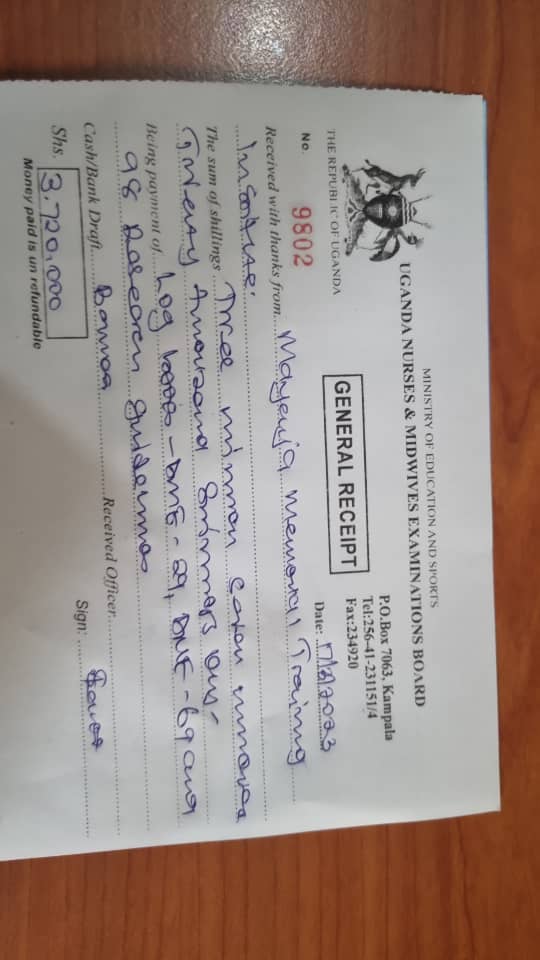 MINISTRY OF EDUCATION AND SPORTS
UGANDA NURSES & MIDWIVES EXAMINATIONS BOARD
P.O.Box 7063, Kampala
Tel:256-41-231151/4
Fax:234920
THE REPUBLIC OF UGANDA
GENERAL RECEIPT
No. 9802
Date: 2023
Received with thanks from Mayanja Memorial Training
Institute.
The sum of shillings Three million seven hundred
Twenty thousand shillings only
Being payment of Log books - DME - 29, DNE - 69 and
98 Research guidelines
Cash/Bank Draft Received Officer
Sign:
Shs. 3,720,000
Money paid is un refundable